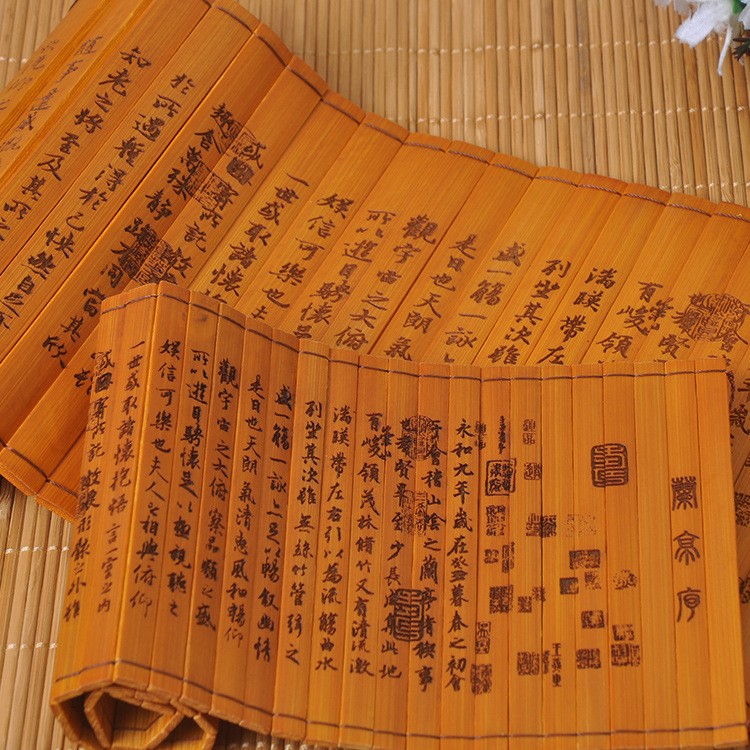 蘭亭序
王羲之
永和九年歲在癸丑暮春之初會
于會稽山陰之蘭亭脩禊事
也羣賢畢至少長咸集此地
有崇山峻領茂林脩竹又有清流激
湍暎帶左右引以為流觴曲水
列坐其次雖無絲竹管弦之
盛一觴一詠亦足以暢敘幽情
是日也天朗氣清惠風和暢仰
觀宇宙之大俯察品類之盛
所以遊目騁懷足以極視聽之
娛信可樂也夫人之相與俯仰
一世或取諸懷抱悟言一室之內
或因寄所託放浪形骸之外雖
也羣賢
有崇山峻領
湍暎帶左
列坐其次雖
盛一觴一詠
是日也天朗氣
觀宇宙之大俯
所以遊目騁懷
娛信可樂也
一世或取諸懷
或因寄所託放
趣舍萬殊靜躁不同當其欣
於所遇蹔得於己快然自足不
知老之將至及其所之